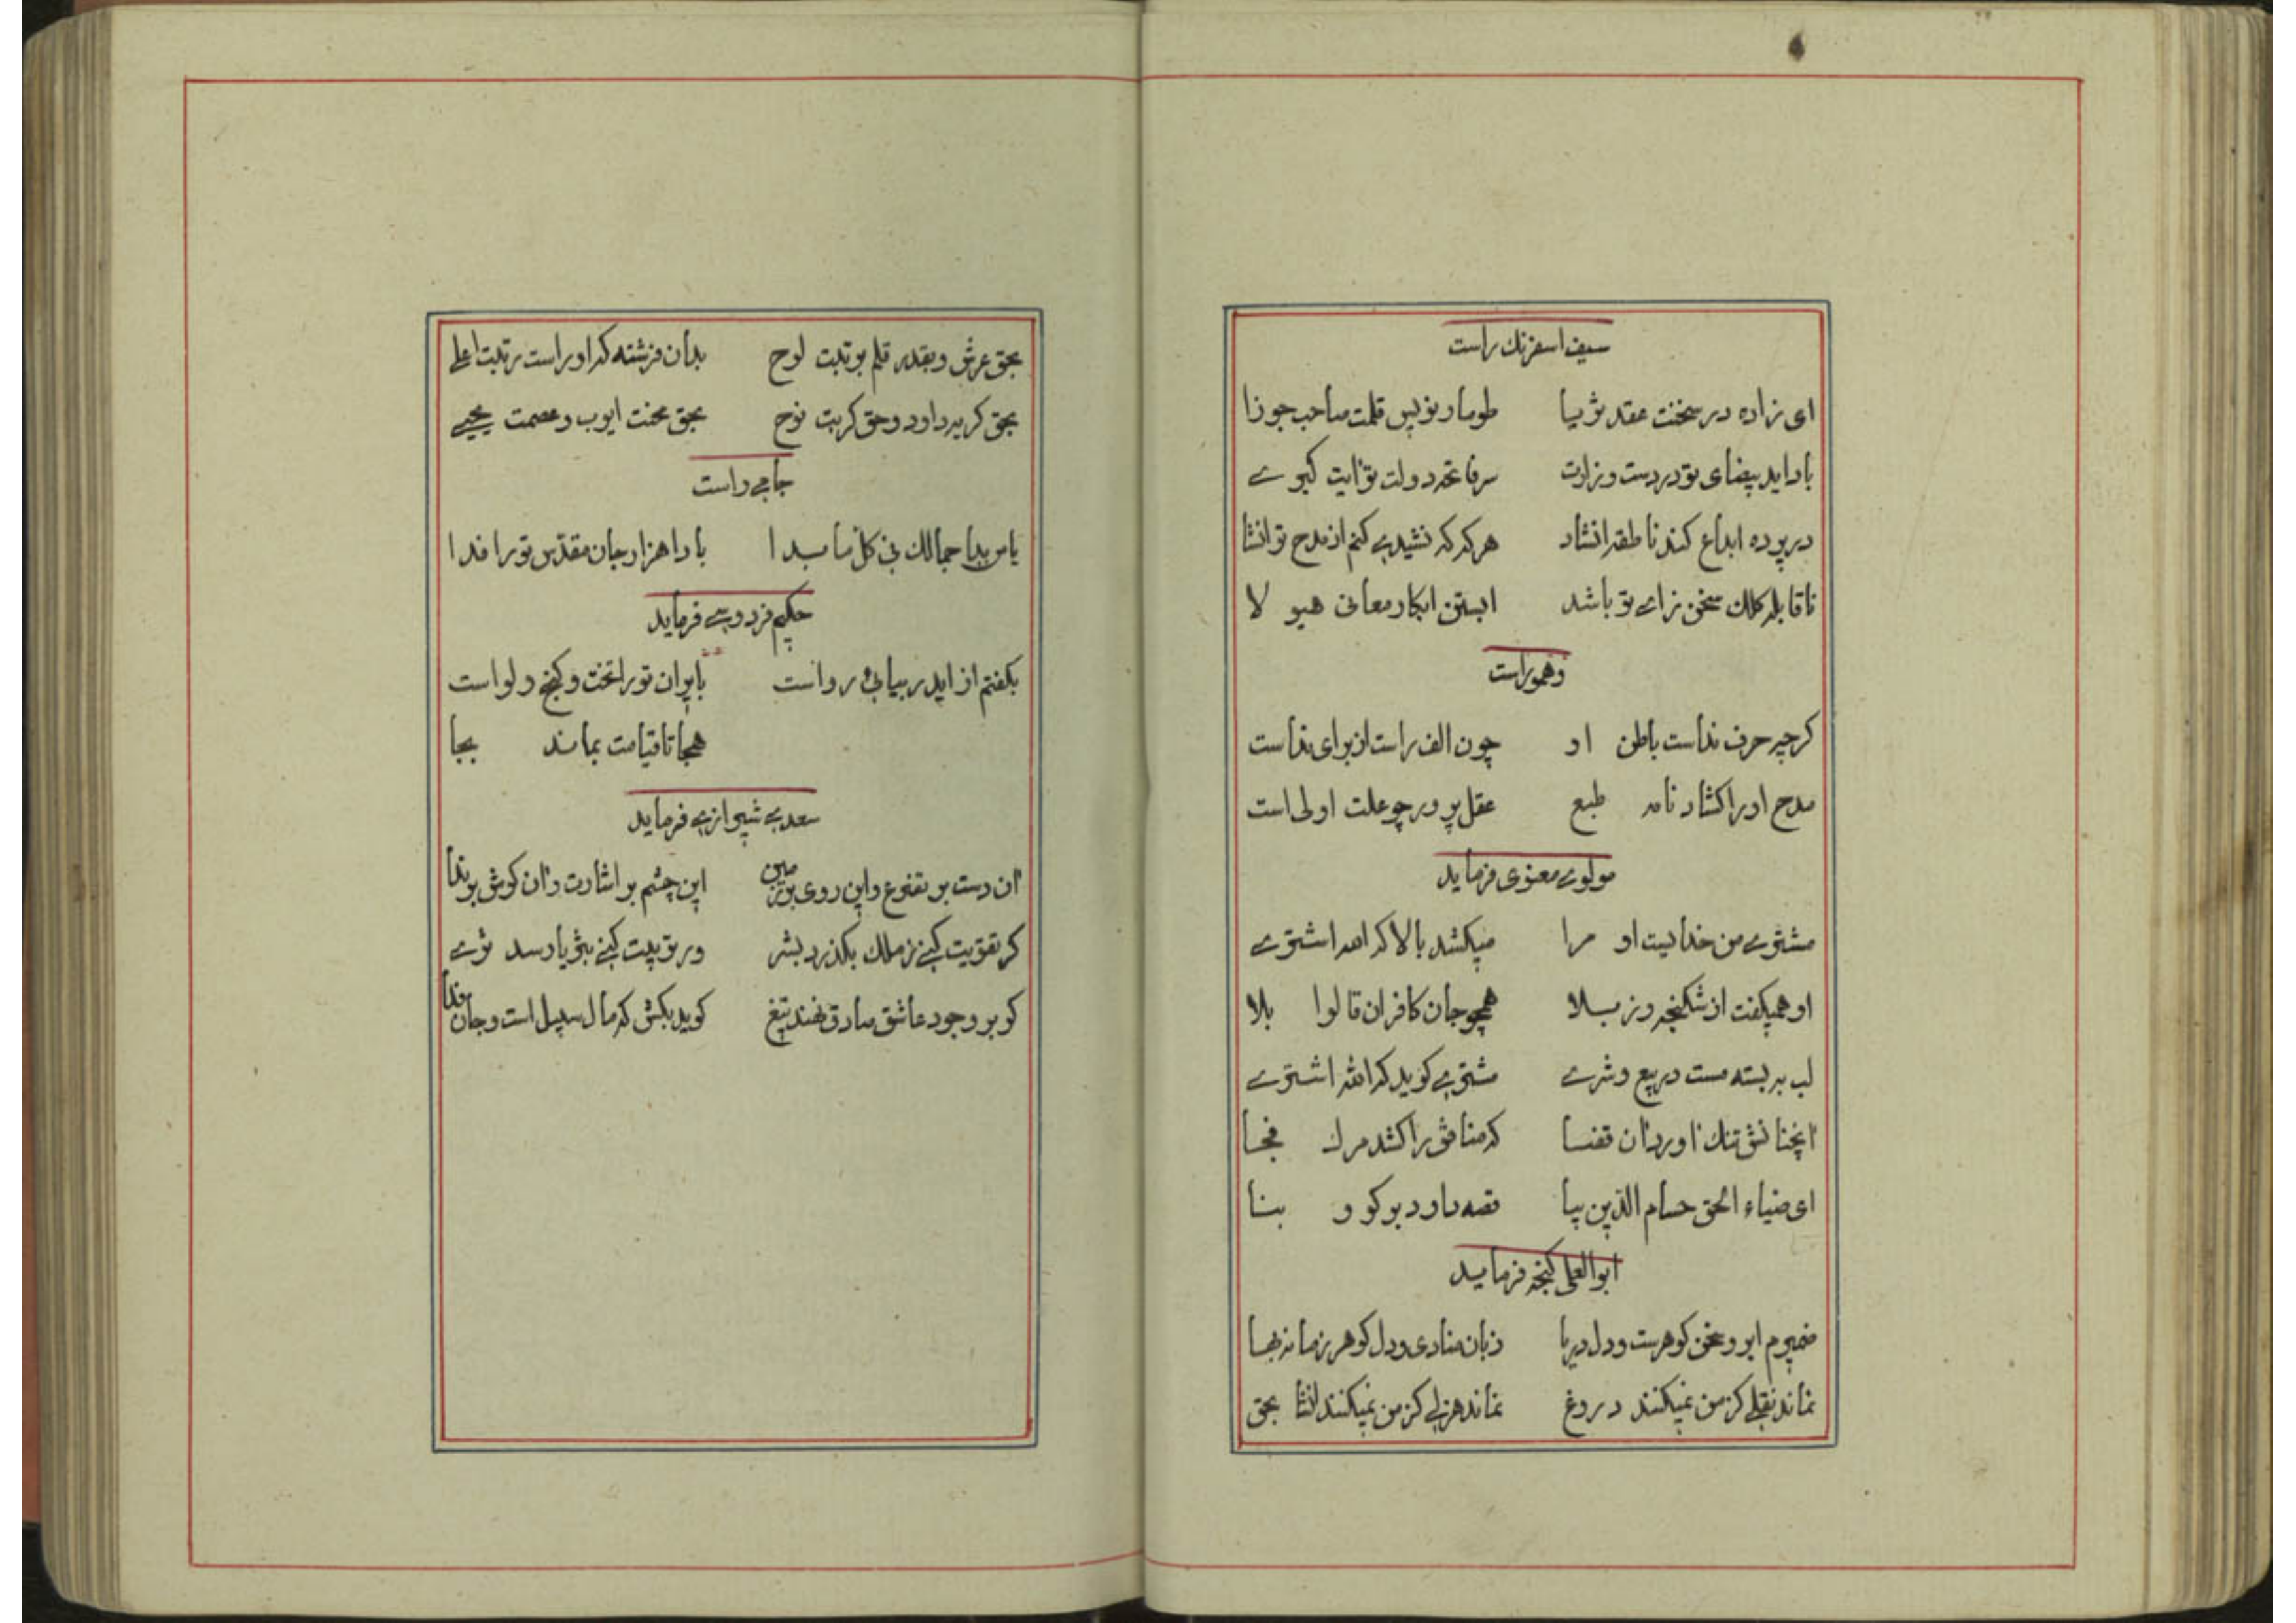 سیف اسفرنك راست
ای زاده در سخنت عقد ثریا طومار نویس قلمت صاحب جوزا
بادا ید بیضای تو در دست وزارت سر فاتحه دولت تو آیت کبری
در پرده ابداع کند ناطقه انشاد هر که که نشیدی کنم از مدح تو انشا
تا قابله کلك سخن زای تو باشد ابستن ابکار معانی هیو لا
وهمو راست
کرچه حرف نداست باطن او چون الف راست از برای نداست
مدح اورا کشاد نامه طبع عقل پرور چو علت اولی است
مولوی معنوی فرماید
مشتری من خدایست او مرا میکشد بالا که الله اشتری
او همیکفت از شکنجه وز بلا همچو جان کافران قالوا بلا
لب ببسته مست در بیع وشری مشتری کوید که الله اشتری
انچنانش تنك اورد ان قضا که منافق را کشد مرك فجا
ای ضیاء الحق حسام الدین بیا قصه داود برکو و بنا
ابوالعلی کنجه فرماید
ضمیرم ابر و سخن کوهرست و دل دریا زبان منادی و دل کوهر زمانه بها
نماند نقلی کز من نمیکنند دروغ نماند هزلی کز من نمیکنند انشا بحق
بحق عرش و بقدر قلم برتبت لوح بدان فرشته که او راست رتبت اعلی
بحق کریه داود و حق کربت نوح بحق محنت ایوب و عصمت یحیی
جامی راست
یا من بدا جمالك فی کل ما بدا بادا هزار جان مقدس تو را فدا
حکیم فردوسی فرماید
بکفتم از ایدر بیائی رواست بایران تو را تخت و کنج و لواست
هجا تا قیامت بماند بجا
سعدی شیرازی فرماید
ان دست بر تضرع و این روی بر زمین این چشم بر اشارت و ان کوش بر ندا
کر تقویت کنی ز ملك بکذرد بشر ور تربیت کنی بثریا رسد ثری
کو بر وجود عاشق صادق نهند تیغ کوید بکش که مال سبیل است و جان فدا